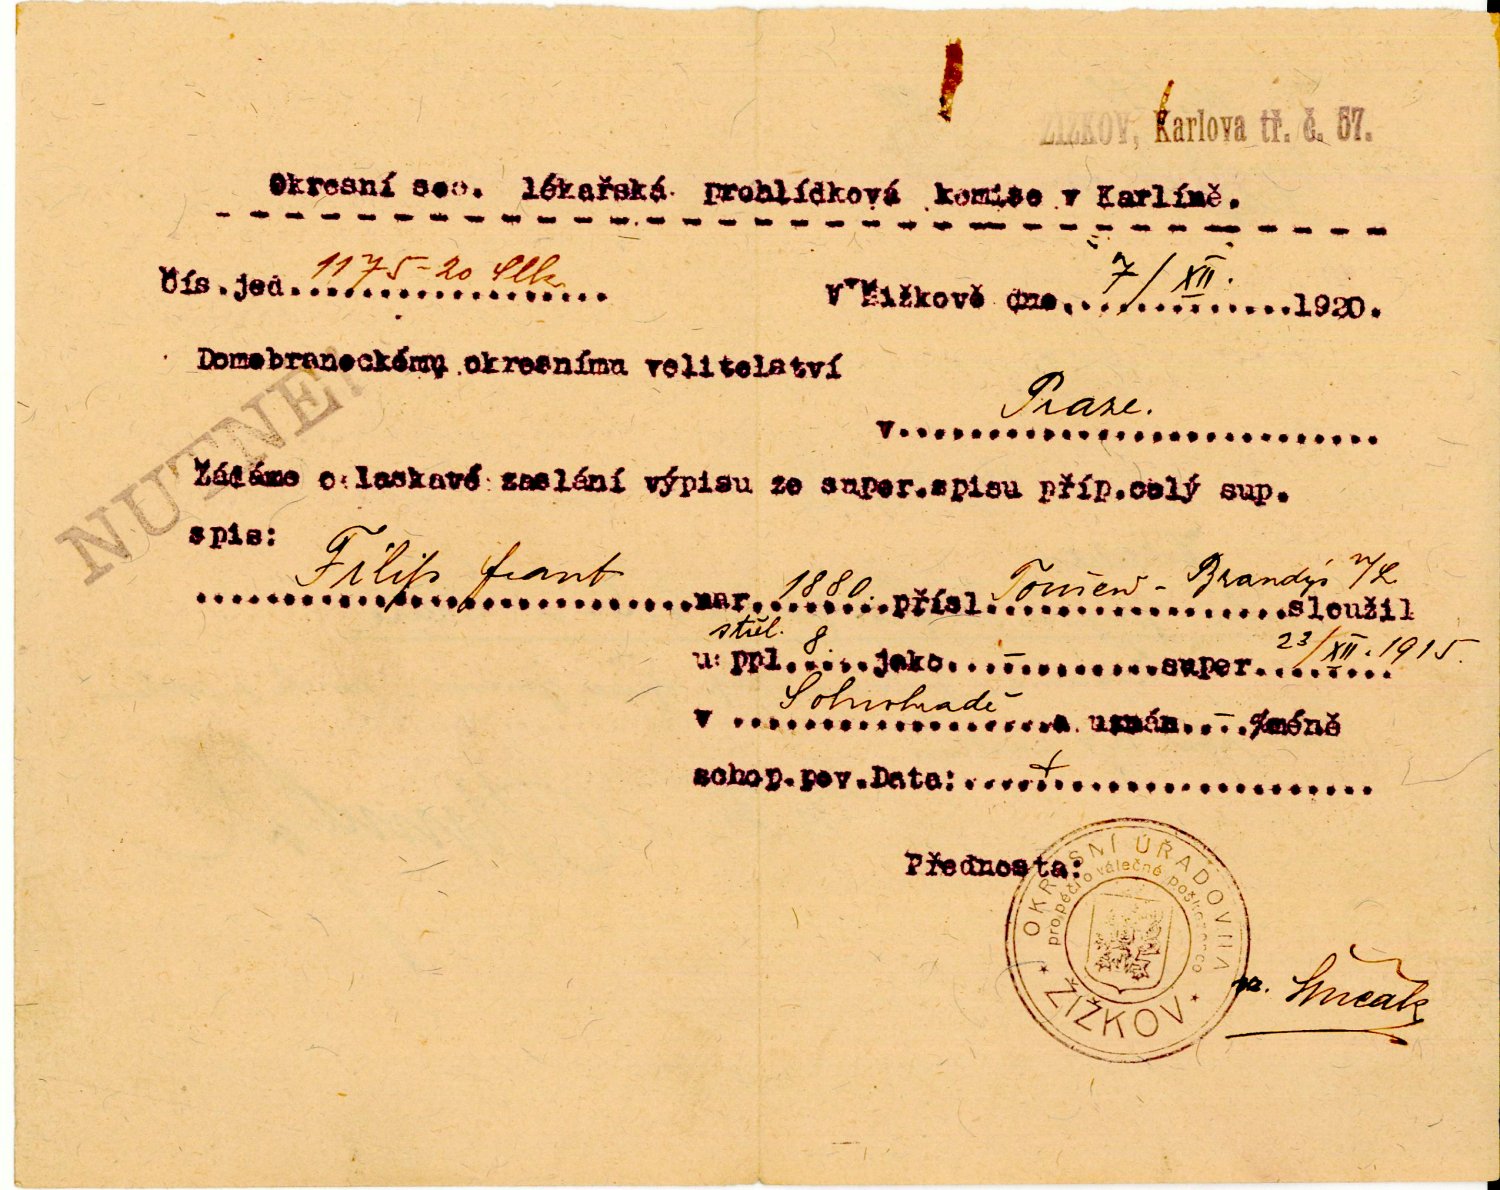 ŽIŽKOV, Karlova tř. č. 57.
Okresní soc. lékařská prohlídková komise v Karlíně.
Čís.jed. 1175-20
V Žižkově dne, 7/XII. 1920.
Domobraneckému okresnímu velitelství
NUTNÉ!
v Praze.
Žádáme o laskavé zaslání výpisu ze super.spisu příp.celý sup.
spis:
Filip frant nar. 1880. přísl. Toušeň - Brandýs n/L sloužil
střel.
u ppl. 8. jako – super. 23/XII. 1915.
v a uznán. – %méně
schop.pov.Data:
Přednosta:
OKRESNÍ ÚŘADOVNA
pro péči o válečné poškozence
ŽIŽKOV